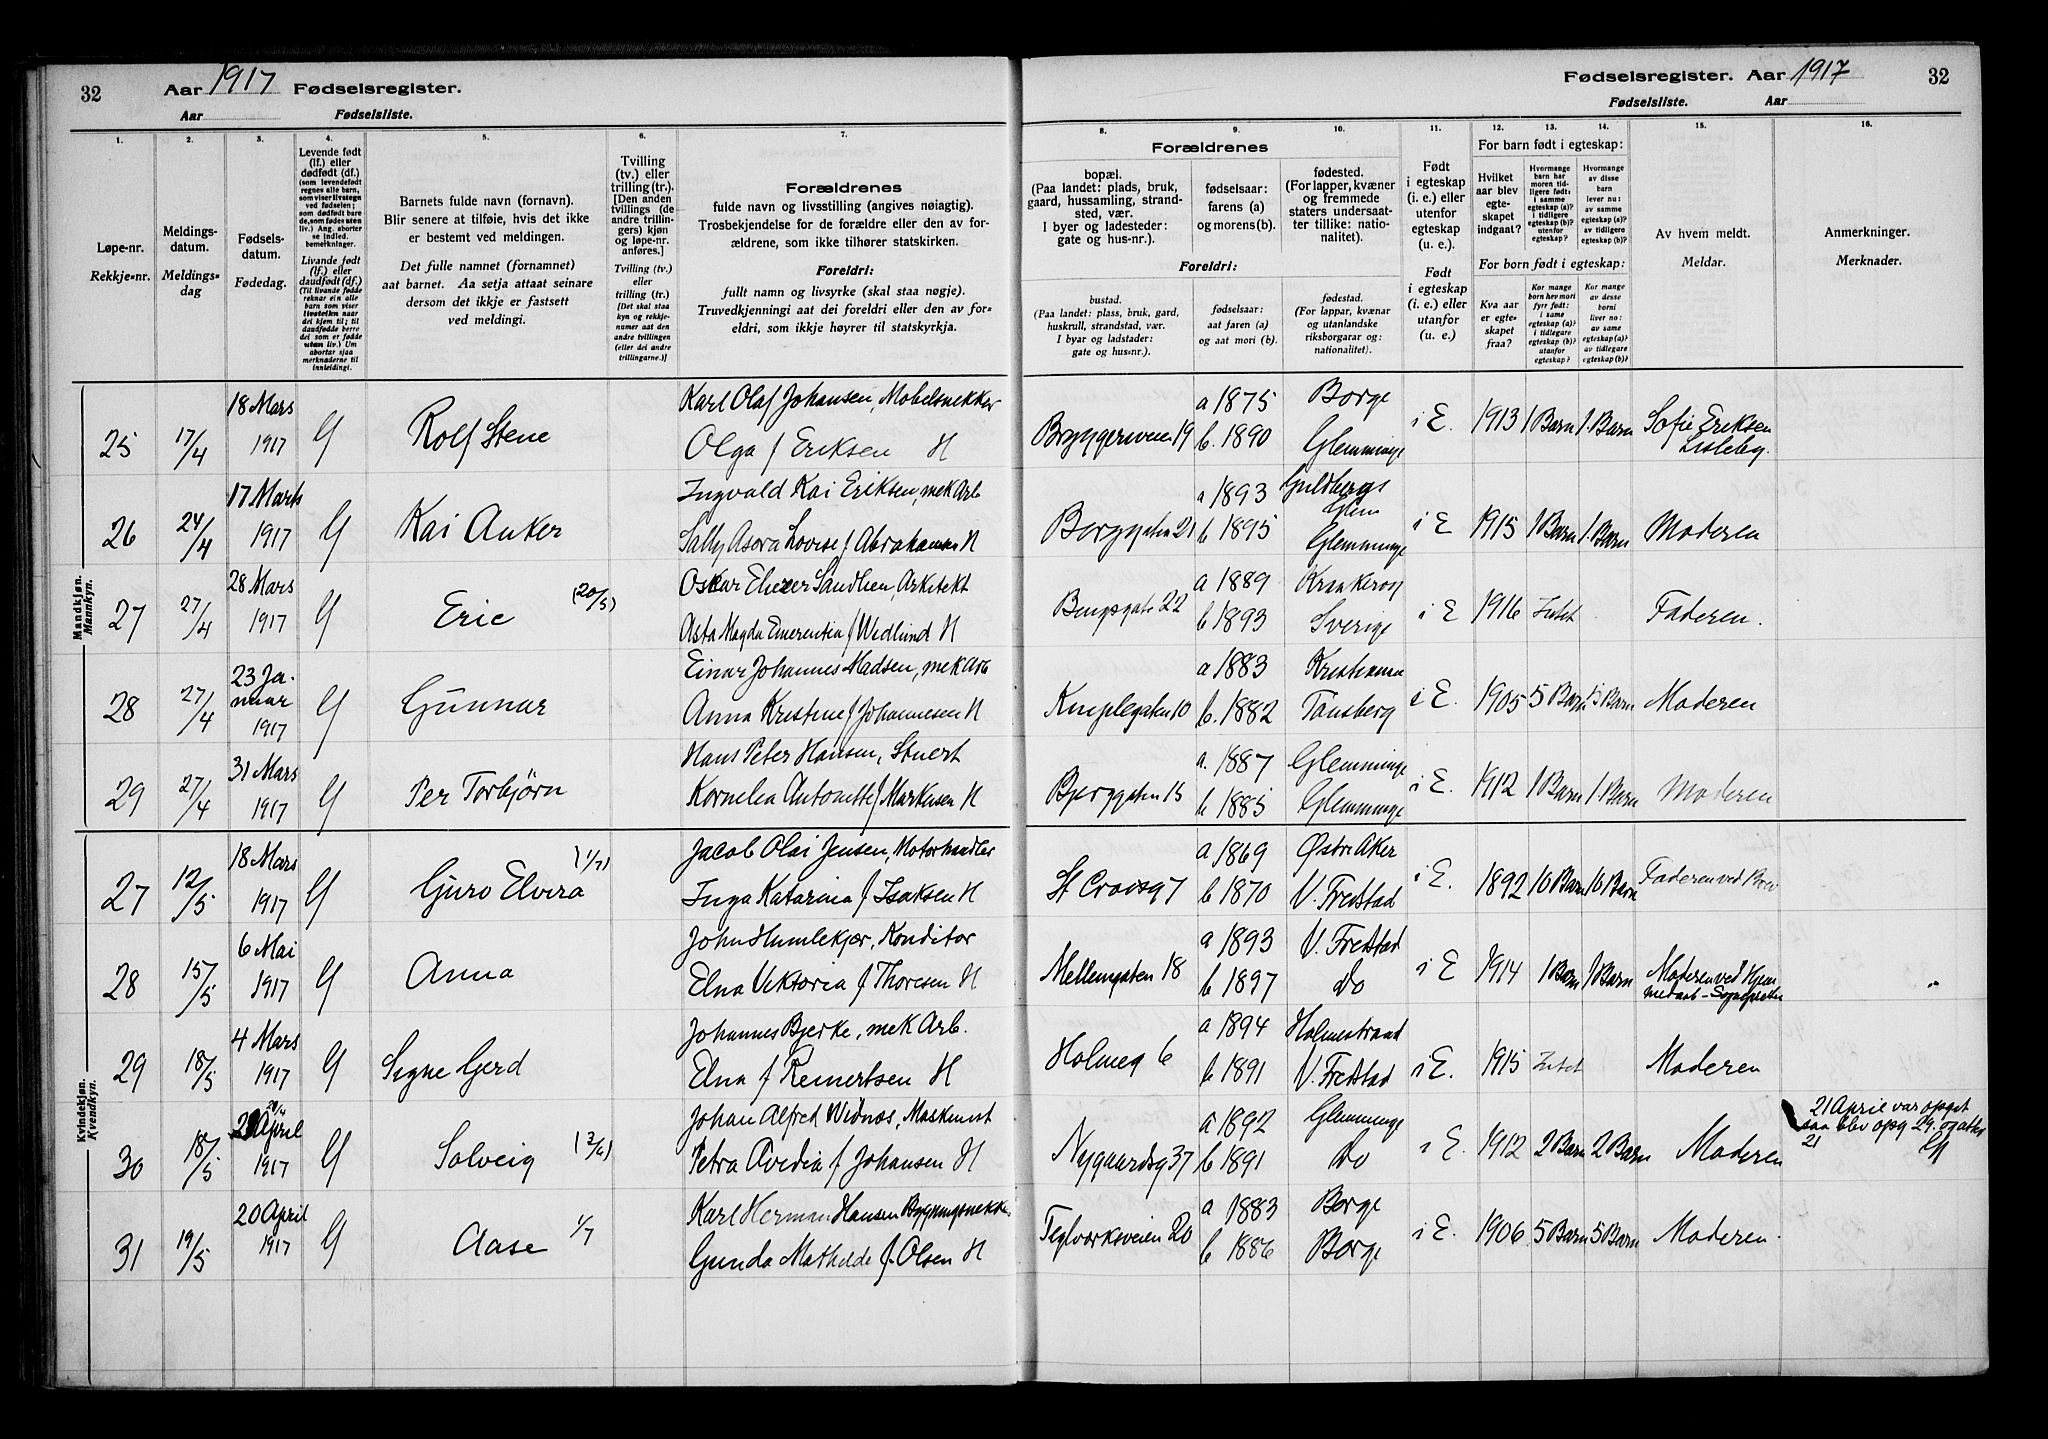 32 Aar 1917 Fødselsregister.
Aar Fødselsliste.
Fødselsregister. Aar 1917 32
Fødselsliste. Aar
1. 2. 3. 4. 5. 6. 7. 8. 9. 10. 11. 12. 13. 14. 15. 16.
Løpe-nr.
Rekkje=nr.
Meldings-
datum.
Meldings=
dag
Fødsels-
datum.
Fødedag.
Levende født
(lf.) eller
dødfødt (df.)
(som levendefødt
regnes alle barn,
som viser livstegn
ved fødselen;
som dødfødt bare
de, som fødes uten
liv.) Ang. aborter
se indled.
bemerkninger.
Livande født
(lf.) eller
daudfødt (df.)
(Til livande fødde
reknar ein alle
barn som viser
livsteikn naar
dei kjem til; til
daudfødde berre
dei som er fødde
utan liv.) Um
abortar sjaa
merknaderne til
innleidingi.
Barnets fulde navn (fornavn).
Blir senere at tilføie, hvis det ikke
er bestemt ved meldingen.
Det fulle namnet (fornamnet)
aat barnet. Aa setja attaat seinare
dersom det ikkje er fastsett
ved meldingi.
Tvilling
(tv.) eller
trilling (tr.).
[Den anden
tvillings (de
andre trillin-
gers) kjøn
og løpe-nr.
anføres.]
Tvilling (tv.)
eller
trilling (tr.)
[Det skal staa
kyn og rekkje-
numer aat den
andre tvillingen
(eller dei andre
trillingarne.)]
Forældrenes
fulde navn og livsstilling (angives nøiagtig).
Trosbekjendelse for de forældre eller den av for-
ældrene, som ikke tilhører statskirken.
Foreldri:
fullt namn og livsyrke (skal staa nøgje).
Truvedkjenningi aat dei foreldri eller den av for=
eldri, som ikkje høyrer til statskyrkja.
Forældrenes
bopæl.
(Paa landet: plads, bruk,
gaard, hussamling, strand-
sted, vær.
I byer og ladesteder:
gate og hus-nr.).
fødselsaar:
farens (a)
og morens (b).
fødested.
(For lapper, kvæner
og fremmede
staters undersaat-
ter tillike: natio-
nalitet).
Foreldri:
bustad.
(Paa landet: plass, bruk, gard,
huskrull, strandstad, vær.
I byar og ladstader:
gate og hus=nr.).
fødselsaar:
aat faren (a)
og aat mori (b).
fødestad.
(For lappar, kvænar
og utanlandske
riksborgarar og:
nationalitet).
Født
i egteskap
(i. e.) eller
utenfor
egteskap
(u. e.).
Født
i egteskap
(i. e.) eller
utanfor
(u. e.)
For barn født i egteskap:
Hvilket
aar blev
egte-
skapet
indgaat?
Hvormange
barn har
moren tid-
ligere født:
i samme
egteskap (a)?
i tidligere
egteskap (b)?
utenfor
egteskap?
Hvormange
av disse
barn
lever nu:
av samme
egteskap (a)?
av tidligere
egteskap (b)?
For born født i egteskap:
Kva aar
er egte-
skapet
fraa?
Kor mange
born hev mori
fyrr født:
i same
egteskap (a)?
i tidlegare
egteskap (b)?
utanfor
egteskap?
Kor mange
av desse
borni
liver no:
av same
egteskap (a)?
av tidlegare
egteskap (b)?
Av hvem meldt.
Meldar.
Anmerkninger.
Merknader.
Mandkjøn.
Mannkyn.
25 17/4 18 Mars 1917 Rolf Stene Karl Olaf Johansen, Møbelsnekker
Olga f Eriksen H Bryggeriveien 19 a 1875 Borge
b. 1890 Glemminge i E. 1913 1 Barn 1. Barn Sofie Eriksen
Lisleby.
26 24/4 17 Mars 1917 Kai Anker Ingvald Kai Eriksen, mek Arb
Sally Asora Lovise f Abrahamsen H Borggaten 21 a 1893 Guldbergs
Glem
b 1895 Glemminge i E 1915 1 Barn 1. Barn Moderen
27 27/4 28 Mars 1917 Eric (20/5) Oskar Sandlien, Arkitekt
Asta Magda Emerentia f Wedlund H 22 a 1889 Krankerøy
b 1893 Sverige i E 1916 Intet Faderen.
28 27/4 23 Ja-
nuar
1917 Gunnar Einar Johannes Madsen, mek Arb
Anna Kristine f Johannesen H Kniplegaten 10 a 1883 Kristiania
b. 1882 Tønsberg i E. 1905 5 Barn 5 Barn Moderen
29 27/4 31 Mars 1917 Per Torbjørn Hans Peter Hansen, Stuert
Kornelia Antonette f Markusen H Bjerggaten 15 a. 1887 Glemminge
b 1885 Glemminge i E. 1912 1 Barn 1. Barn Moderen
Kvindekjøn.
Kvendkyn.
27 12/5 18 Mars 1917 Guro Elvira (1/7) Jacob Olai Jensen, Motorhandler
Inga Katarina f Isaksen H St Croixg 7 a 1869 Østre Aker
b 1870 V. Fredstad i E. 1892 10 Barn 10 Barn Faderen ved Brev
28 15/5 6 Mai 1917 Anna John Humlekjær, Konditor
Elna Viktoria f Thoresen H Mellemgaten 18 a 1893 V. Fredstad
b 1897 Do i E 1914 1 Barn 1 Barn Moderen ved
29 18/5 4 Mars 1917 Signe Gerd Johannes Bjerke, mek Arb.
Elna f Reinertsen H Holmeg 6 a 1894 Holmestrand
b 1891 V. Fredstad i E. 1915 Intet Moderen
30 18/5 April 1917 Solveig Johan Alfred Widnæs, Maskinist
Petra Avedia f Johansen H Nygaardsg 37 a 1892 Glemminge
b 1891 Do i E. 1912 2 Barn 2 Barn Moderen
21 April var opget
saa blev opg 29. og atter
21
31 19/5 20 April 1917 Aase 1/7 Karl Herman Hansen Bygningsnekker
Gunda Mathilde f. Olsen H Teglværksveien 20 a 1883 Borge
b 1886 Borge i E. 1906 5 Barn 5 Barn Moderen.